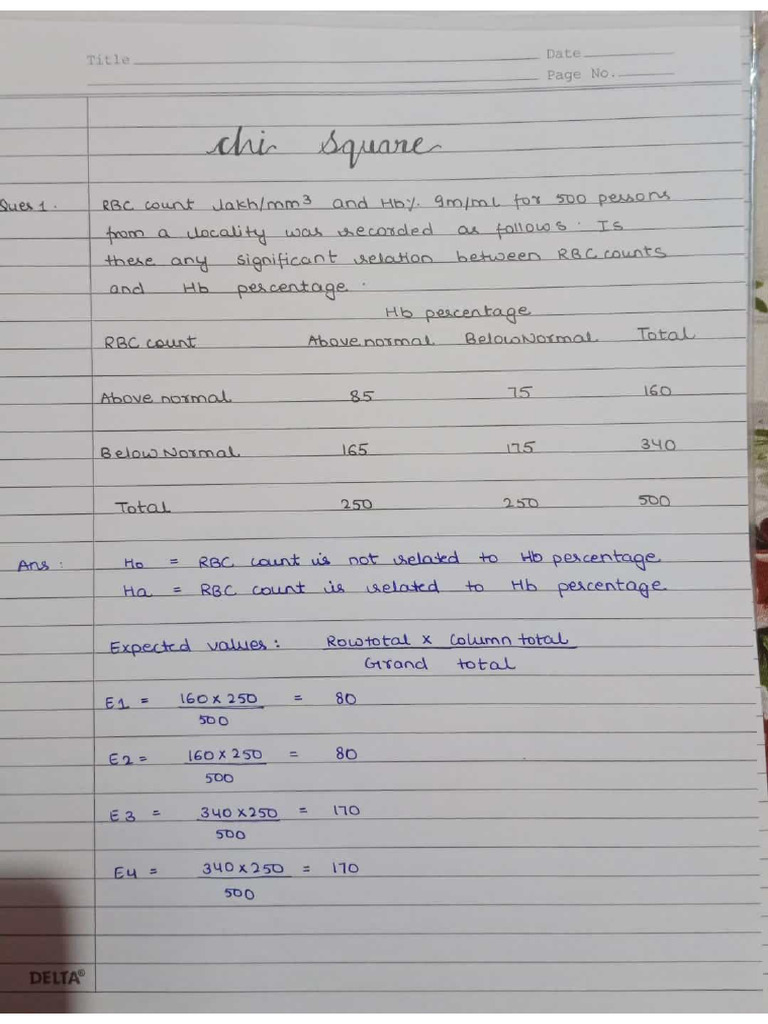 Title
Date
Page No.
Chi Square
Ques 1. RBC count lakh/mm³ and Hb% gm/ml for 500 persons
from a locality was recorded as follows. Is
there any significant relation between RBC counts
and Hb percentage.
Hb percentage
RBC count Above normal Below Normal Total
Above normal 85 75 160
Below Normal 165 175 340
Total 250 250 500
Ans: Ho = RBC count is not related to Hb percentage
Ha = RBC count is related to Hb percentage
Expected values: Row total x Column total
Grand total
E1 = 160 x 250 = 80
500
E2 = 160 x 250 = 80
500
E3 = 340 x 250 = 170
500
E4 = 340 x 250 = 170
500
DELTA®